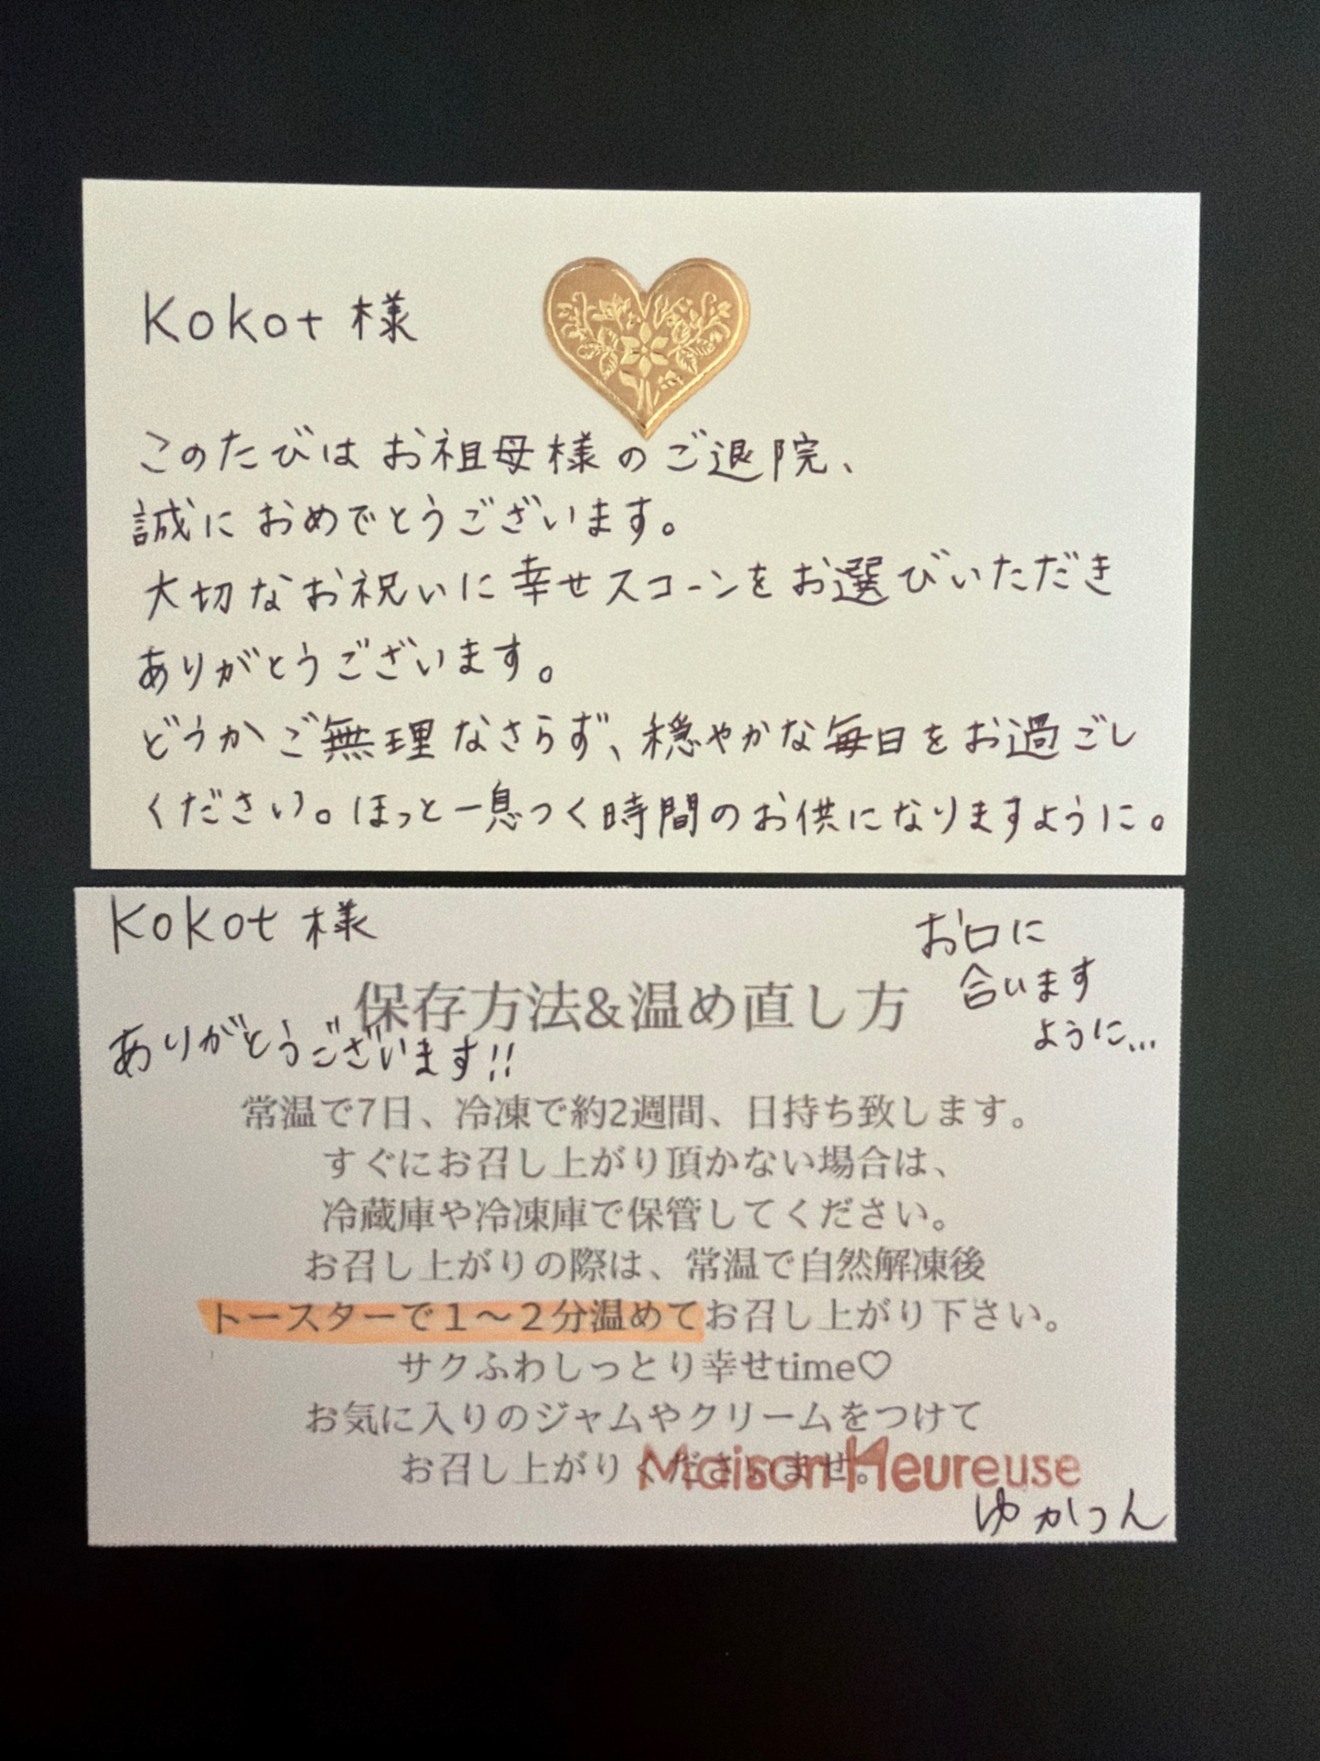 Kokot 様
このたびは お祖母様のご退院、
誠に おめでとうございます。
大切なお祝いに 幸せスコーンをお選びいただき
ありがとうございます。
どうか ご無理なさらず、穏やかな毎日をお過ごし
ください。ほっと一息つく時間のお供になりますように。
Kokot 様
お口に
合います
ように…
保存方法&温め直し方
ありがとうございます!!
常温で7日、冷凍で約2週間、日持ち致します。
すぐにお召し上がり頂かない場合は、
冷蔵庫や冷凍庫で保管してください。
お召し上がりの際は、常温で自然解凍後
トースターで１〜２分温めてお召し上がり下さい。
サクふわしっとり幸せtime♡
お気に入りのジャムやクリームをつけて
お召し上がりくださいませ。
Maison Heureuse
ゆかつん